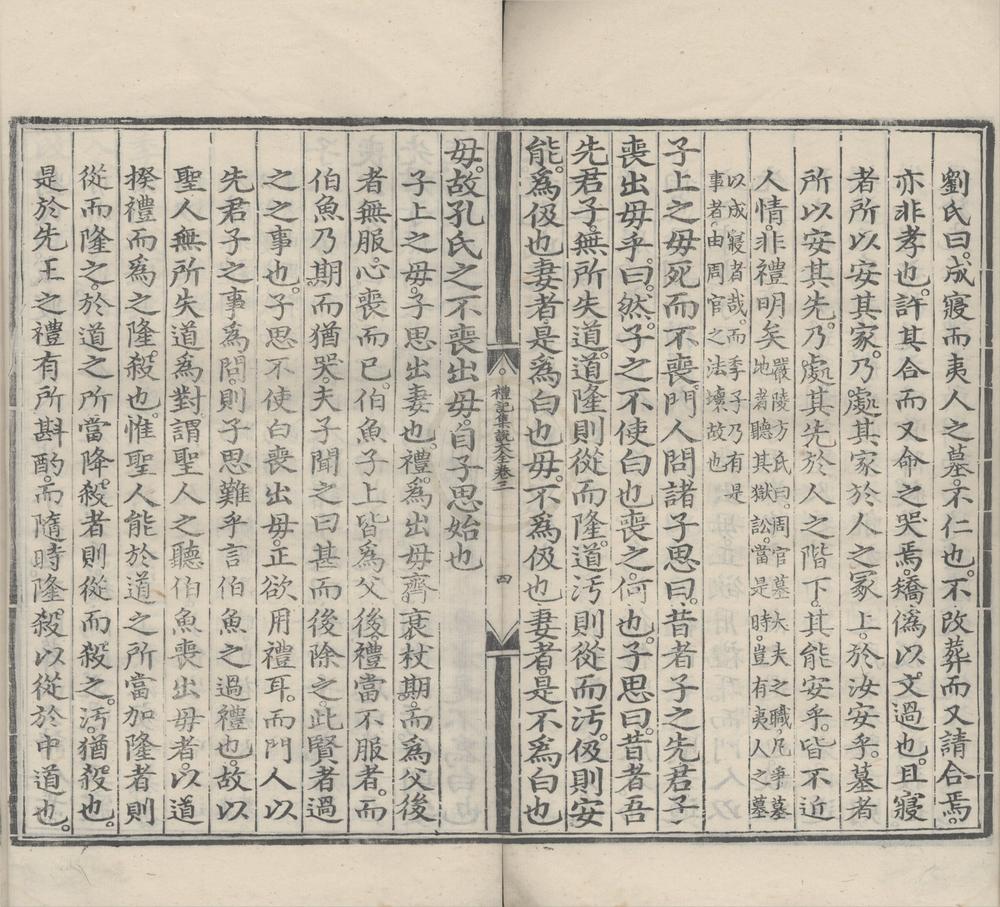 劉氏曰。成寢而夷人之墓。不仁也。不改葬而又請合焉。
亦非孝也。許其合而又命之哭焉。矯僞以文過也。且寢
者所以安其家。乃處其家於人之冢上。於汝安乎。墓者
所以安其先。乃處其先於人之階下。其能安乎。皆不近
人情。非禮明矣
嚴陵方氏曰。周官墓大夫之職。凡爭墓
地者。聽其獄訟。當是時。豈有夷人之墓
以成寢者哉。而季子乃有是
事者。由周官之法壞故也
子上之母死而不喪。門人問諸子思曰。昔者子之先君子
喪出母乎。曰。然。子之不使白也喪之。何也。子思曰。昔者吾
先君子。無所失道。道隆則從而隆。道汚則從而汚。伋則安
能。爲伋也妻者。是爲白也母。不爲伋也妻者。是不爲白也
禮記集說大全卷三
四
母。故孔氏之不喪出母。自子思始也
子上之母。子思出妻也。禮。爲出母齊衰杖期。而爲父後
者無服。心喪而已。伯魚子上皆爲父後。禮當不服者。而
伯魚乃期而猶哭。夫子聞之曰甚而後除之。此賢者過
之之事也。子思不使白喪出母。正欲用禮耳。而門人以
先君子之事爲問。則子思難乎言伯魚之過禮也。故以
聖人無所失道爲對。謂聖人之聽伯魚喪出母者。以道
揆禮而爲之隆殺也。惟聖人能於道之所當加隆者則
從而隆之。於道之所當降殺者則從而殺之。汚。猶殺也。
是於先王之禮有所斟酌。而隨時隆殺以從於中道也。